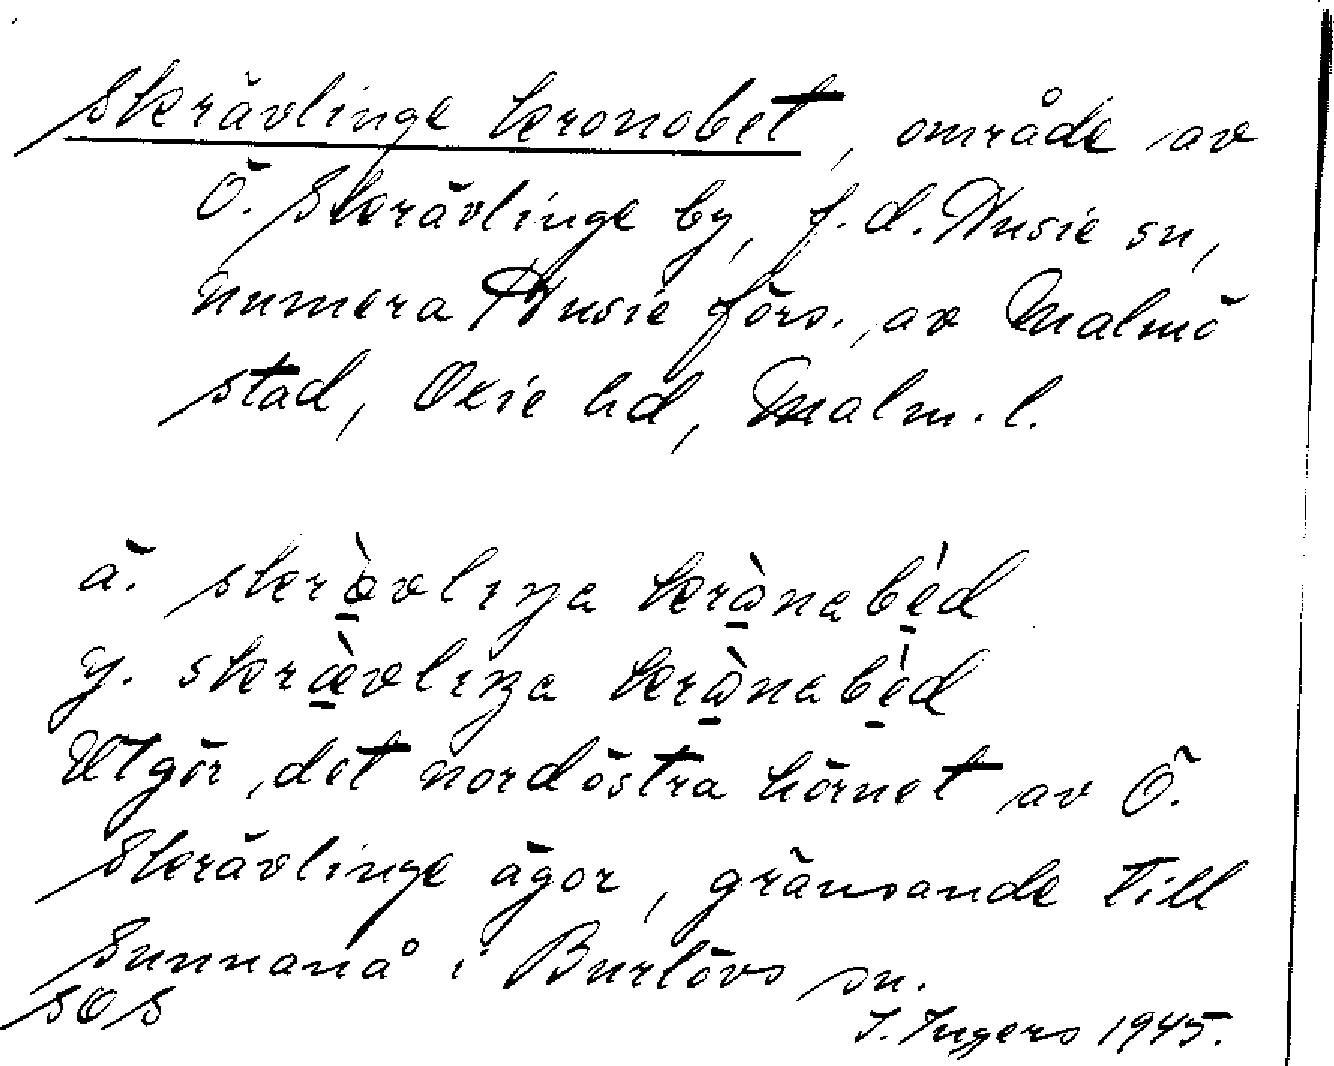 Skrävlinge kronobet, område av
Ö. Skrävlinge by, f.d. Husie sn,
numera Husie förs. av Malmö
stad, Oxie hd, Malm. l.
ä. skr̀ə̱vlıŋa krɷ̱̀nabé̱d
y. skræ̱̀vlıŋa krɷ̱̀nabé̱d
Utgör det nordöstra hörnet av Ö.
Skrävlinge ägor, gränsande till
Sunnanå i Burlövs sn.
SOS
I. Ingers 1945.